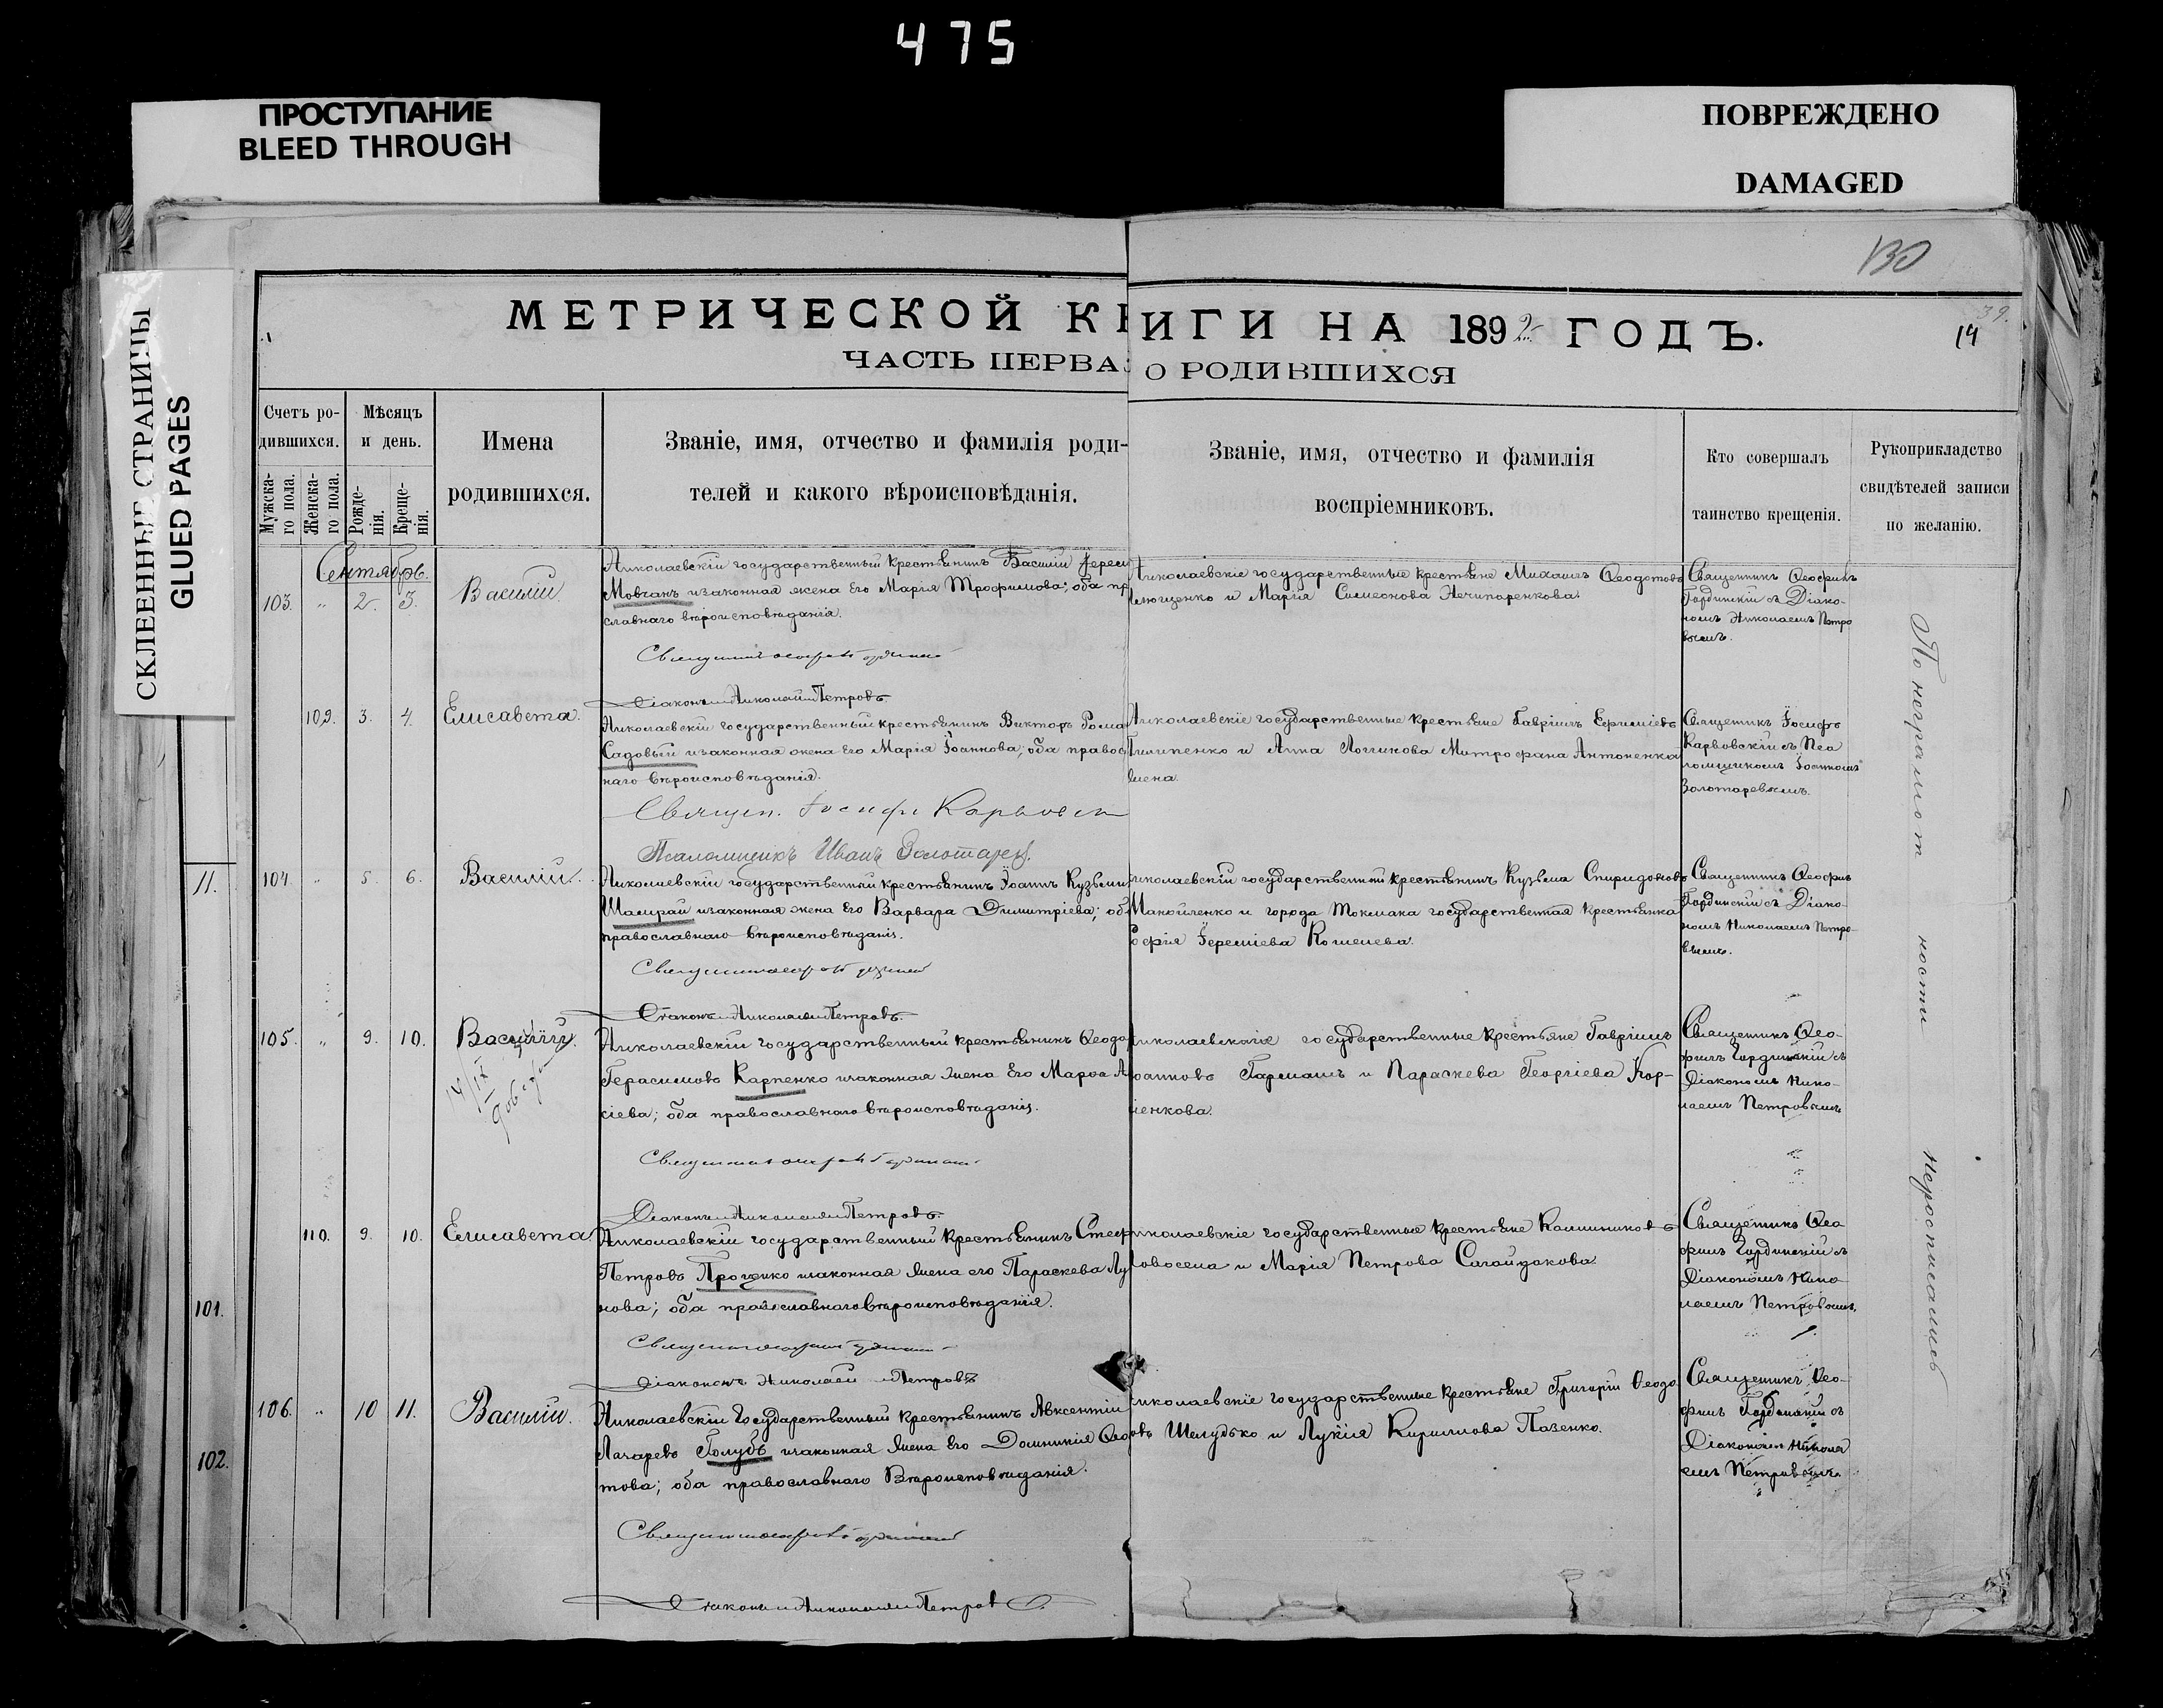 475
ПРОСТУПАНИЕ
BLEED THROUGH
ПОВРЕЖДЕНО
DAMAGED
СКЛЕЕННЫЕ СТРАНИЦЫ
GLUED PAGES
130
39.
14
МЕТРИЧЕСКОЙ КНИГИ НА 1892 ГОДЪ.
ЧАСТЬ ПЕРВАЯ О РОДИВШИХСЯ
Счетъ ро-
дившихся.
Мужска-
го пола.
Женска-
го пола.
Мѣсяцъ
и день.
Рожде-
нія.
Креще-
нія.
Имена
родившихся.
Званіе, имя, отчество и фамилія роди-
телей и какого вѣроисповѣданія.
Званіе, имя, отчество и фамилія
воспріемниковъ.
Кто совершалъ
таинство крещенія.
Рукоприкладство
свидѣтелей записи
по желанію.
Сентябрь.
103. „ 2. 3. Василій.
Николаевскій государственный крестьянинъ Василій Іереми
Мовчанъ и законная жена его Марія Трофимова; оба пр
славнаго вѣроисповѣданія.
Діаконъ Николай Петровъ
Николаевскіе государственные крестьяне Михаилъ Ѳеодотовъ
и Марія Симеонова Нечипоренкова.
Священникъ Ѳеофилъ
Гординскій съ Діако-
номъ Николаемъ Петро
вымъ.
109. 3. 4. Елисавета.
Николаевскій государственный крестьянинъ Викторъ Рома
Садовый и законная жена его Марія Іоаннова; оба правос
наго вѣроисповѣданія.
Священ. Іосифъ Карвовск
Псаломщикъ Иванъ Золотарев.
Николаевскіе государственные крестьяне Гавріилъ Ефиміевъ
Пилипенко и Анна Логинова Митрофана Антоненка
жена.
Священникъ Іосифъ
Карвовскій съ Пса
ломщикомъ Іоанномъ
Золотаревымъ.
11.
104. „ 5. 6. Василій.
Николаевскій государственный крестьянинъ Іоаннъ Кузьмин
Шамрай и законная жена его Варвара Димитріева; об
православнаго вѣроисповѣданія.
Діаконъ Николай Петровъ.
Николаевскій государственный крестьянинъ Кузьма Спиридоновъ
Манойленко и города Токмака государственная крестьянка
Софія Іереміева Кошелева.
Священникъ Ѳеофилъ
Гординскій съ Діако-
номъ Николаемъ Петро-
вымъ.
105. „ 9. 10. Василій.
Николаевскій государственный крестьянинъ Ѳеодо
Герасимовъ Карпенко и законная жена его Марѳа А
кіева; оба православнаго вѣроисповѣданія.
Діаконъ Николай Петровъ.
Николаевскіе государственные крестьяне Гавріилъ
Іоанновъ Гармашъ и Параскева Георгіева Кор-
Священникъ Ѳео-
филъ Гординскій съ
Діакономъ Нико-
лаемъ Петровымъ
110. 9. 10. Елисавета
Николаевскій государственный крестьянинъ Стеф
Петровъ Проценко и законная жена его Параскева Лу
нова; оба православнаго вѣроисповѣданія.
Діаконъ Николай Петровъ
Николаевскіе государственные крестьяне
и Марія Петрова Сагайдакова.
Священникъ Ѳео
филъ Гординскій съ
Діакономъ Нико
лаемъ Петровымъ.
101.
106. „ 10 11. Василій.
Николаевскій Государственный крестьянинъ Авксентій
Лазаревъ Голубъ и законная жена его Домникія Ѳео
това; оба православнаго Вѣроисповѣданія.
Діаконъ Николай Петровъ.
Николаевскіе государственные крестьяне Григорій Ѳеодо
овъ Шелудько и Лукія Кириллова Пазенко.
Священникъ Ѳео-
филъ Гординскій съ
Діакономъ Никола
емъ Петровымъ.
102.
По неграмот ности нерасписались